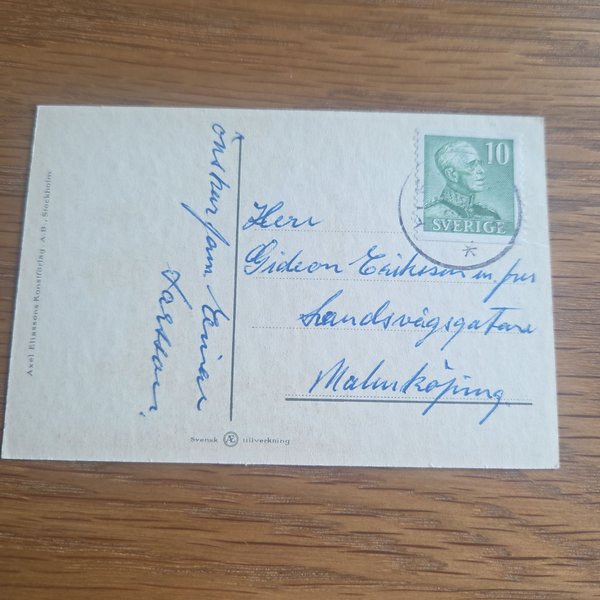 önskar fam. Einar
Larsson.
10
SVERIGE
Herr
Gideon Eriksson m. fru
Landsvägsgatan
Malmköping
Axel Eliassons Konstförlag A.B., Stockholm
Svensk Æ tillverkning